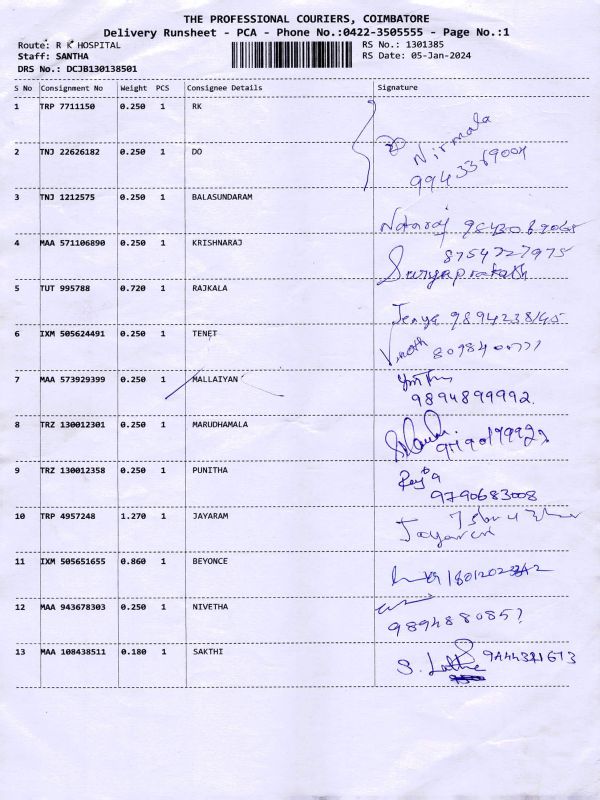 THE PROFESSIONAL COURIERS, COIMBATORE
Delivery Runsheet - PCA - Phone No.:0422-3505555 - Page No.:1
Route: R K HOSPITAL RS No.: 1301385
Staff: SANTHA RS Date: 05-Jan-2024
DRS No.: DCJB130138501
S No Consignment No Weight PCS Consignee Details Signature
1 TRP 7711150 0.250 1 RK
Nirmala
2 TNJ 22626182 0.250 1 DO
3 TNJ 1212575 0.250 1 BALASUNDARAM
Nataraj
4 MAA 571106890 0.250 1 KRISHNARAJ
8754727975
Suryaprakash
5 TUT 995788 0.720 1 RAJKALA
Jenya 9894238145
6 IXM 505624491 0.250 1 TENET
Vinoth
7 MAA 573929399 0.250 1 MALLAIYAN
9894899992
8 TRZ 130012301 0.250 1 MARUDHAMALA
9 TRZ 130012358 0.250 1 PUNITHA
9790683008
10 TRP 4957248 1.270 1 JAYARAM
Jayaram
11 IXM 505651655 0.860 1 BEYONCE
12 MAA 943678303 0.250 1 NIVETHA
9894880857
13 MAA 108438511 0.180 1 SAKTHI
S.